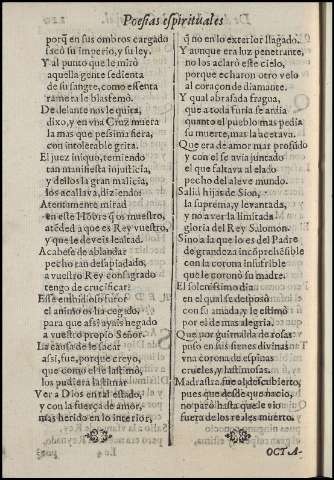 Poesias espirituales
porq̃ en sus ombros cargado
sacò su imperio, y su ley.
Y al punto que le mirò
aquella gente sedienta
de su sangre, como essenta
ramera le blasfemò.
De delante nos le quita,
dixo, y en vna Cruz muera
la mas que pessima fiera,
con intolerable grita.
El juez iniquo, temiendo
tan manifiesta injusticia,
y dellos la gran malicia,
los acallaua, diziendo:
Atentamente mirad
en este Hõbre q̃ os muestro,
atẽded a que es Rey vuestro,
y que le deueis lealtad.
Acabese de ablandar
pecho tan desapiadado,
a vuestro Rey consagrado
tengo de crucificar?
Esse embidioso furor
el animo os ha cegado,
para que assi ayais negado
a vuestro propio Señor.
La causa de le sacar
assi, fue, porque creyo,
que como el se lastimò,
los pudiera lastimar
Ver a Dios en tal estado,
y con la fuerça de amor,
mas herido en lo interior,
q̃ no en lo exterior llagado.
Y aunque era luz penetrante,
no los aclarò este cielo,
porque echaron otro velo
al coraçon de diamante.
Y qual abrasada fragua,
que a toda furia se ardia
quanto el pueblo mas pedia
su muerte, mas la acetaua.
Que era de amor mas prosido
y con el se auia juntado
el que faltaua al elado
pecho del aleue mundo.
Salid hijas de Sion,
la suprema, y leuantada,
y no a ver la limitada
gloria del Rey Salomon.
Sino a la que lo es del Padre
de grandeza incõprehẽsible
con la corona insufrible
que le coronò su madre.
El solenissimo dia
en el qual se desposò
con su amada, y le estimò
por el de mas alegria.
Que por guirnalda de rosas
puso en sus sienes diuinas
vna corona de espinas
crueles, y lastimosas.
Madrastra fue al descubierto,
pues que desde que nacio,
no parò hasta que le vio
fuera de los reales muerto.
OCTA-